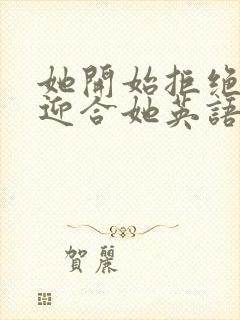 她開始拒绝
迎合她英語
賀麗